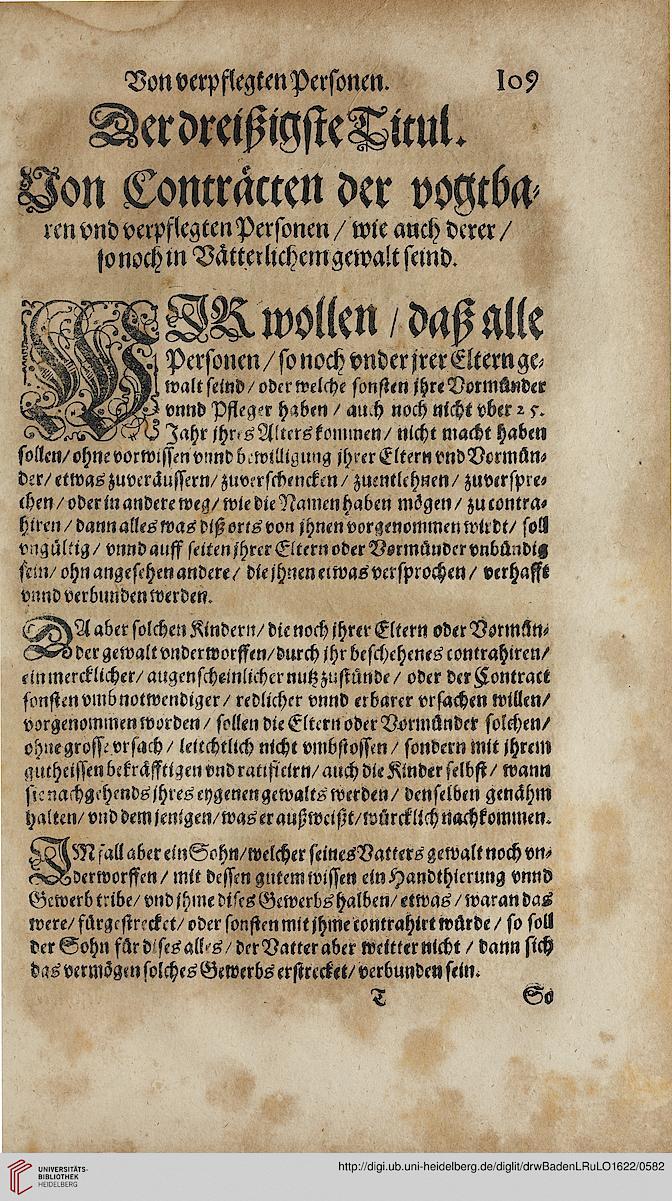 Von verpflegten Personen. 109
Der dreißigste Titul.
Von Conträcten der vogtba⸗
ren vnd verpflegten Personen / wie auch derer /
so noch in Vätterlichem gewalt seind.
WIR wollen / daß alle
Personen / so noch vnder jrer Eltern ge⸗
walt seind / oder welche sonsten ihre Vormünder
vnnd Pfleger haben / auch noch nicht vber 25.
Jahr ihres Alters kommen / nicht macht haben
sollen / ohne vorwissen vnnd bewilligung ihrer Eltern vnd Vormün⸗
der / etwas zuveräussern / zuverschencken / zuentlehnen / zuverspre⸗
chen / oder in andere weg / wie die Namen haben mögen / zu contra⸗
hiren / dann alles was diß orts von ihnen vorgenommen wirdt / soll
vngültig / vnnd auff seiten jhrer Eltern oder Vormünder vnbündig
sein / ohn angesehen andere / die jhnen etwas versprochen / verhafft
vnnd verbunden werden.
DA aber solchen Kindern / die noch ihrer Eltern oder Vormün⸗
der gewalt vnderworffen / durch ihr beschehenes contrahiren /
ein mercklicher / augenscheinlicher nutz zustünde / oder der Contract
sonsten vmb notwendiger / redlicher vnnd erbarer vrsachen willen /
vorgenommen worden / sollen die Eltern oder Vormünder solchen /
ohne grosse vrsach / leichtlich nicht vmbstossen / sondern mit ihrem
gutheissen bekräfftigen vnd ratificirn / auch die Kinder selbst / wann
sie nachgehends ihres eygenen gewalts werden / denselben genähm
halten / vnd dem jenigen / was er außweißt / würcklich nachkommen.
IM fall aber ein Sohn / welcher seines Vatters gewalt noch vn⸗
derworffen / mit dessen gutem wissen ein Handthierung vnnd
Gewerb tribe / vnd jhme dises Gewerbs halben / etwas / waran das
were / fürgestrecket / oder sonsten mit jhme contrahirt würde / so soll
der Sohn für dises alles / der Vatter aber weitter nicht / dann sich
das vermögen solches Gewerbs erstrecket / verbunden sein.
T So
UNIVERSITÄTS-
BIBLIOTHEK
HEIDELBERG
http://digi.ub.uni-heidelberg.de/diglit/drwBadenLRuLO1622/0582